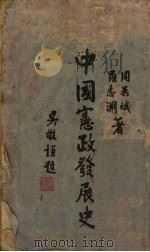 周異斌
羅志淵
著
中國憲政發展史
吳敬恆題